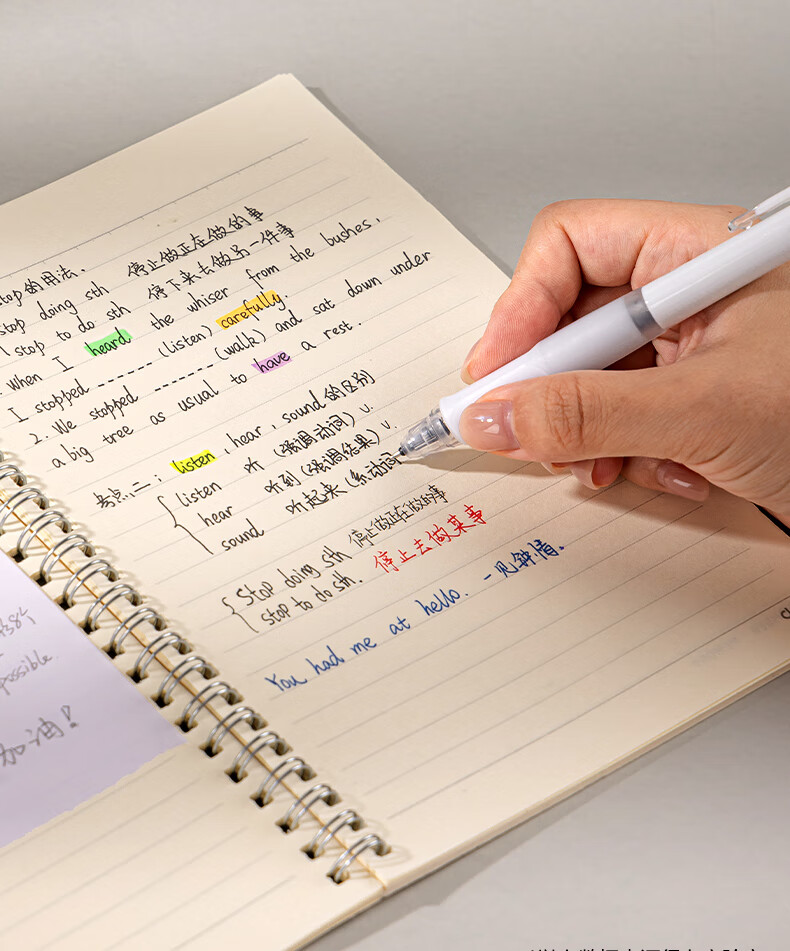 stop的用法.
stop doing sth 停止做正在做的事
stop to do sth 停下来去做另一件事
. When I heard the whiser from the bushes,
I stopped ------ (listen) carefully
2. We stopped ------ (walk) and sat down under
a big tree as usual to have a rest.
考点二: listen, hear, sound的区别
listen 听 (强调动词) v.
hear 听到 (强调结果) v.
sound 听起来 (系动词
Stop doing sth 停止做正在做的事
stop to do sth. 停止去做某事
You had me at hello. 一见钟情.
possible
加油!